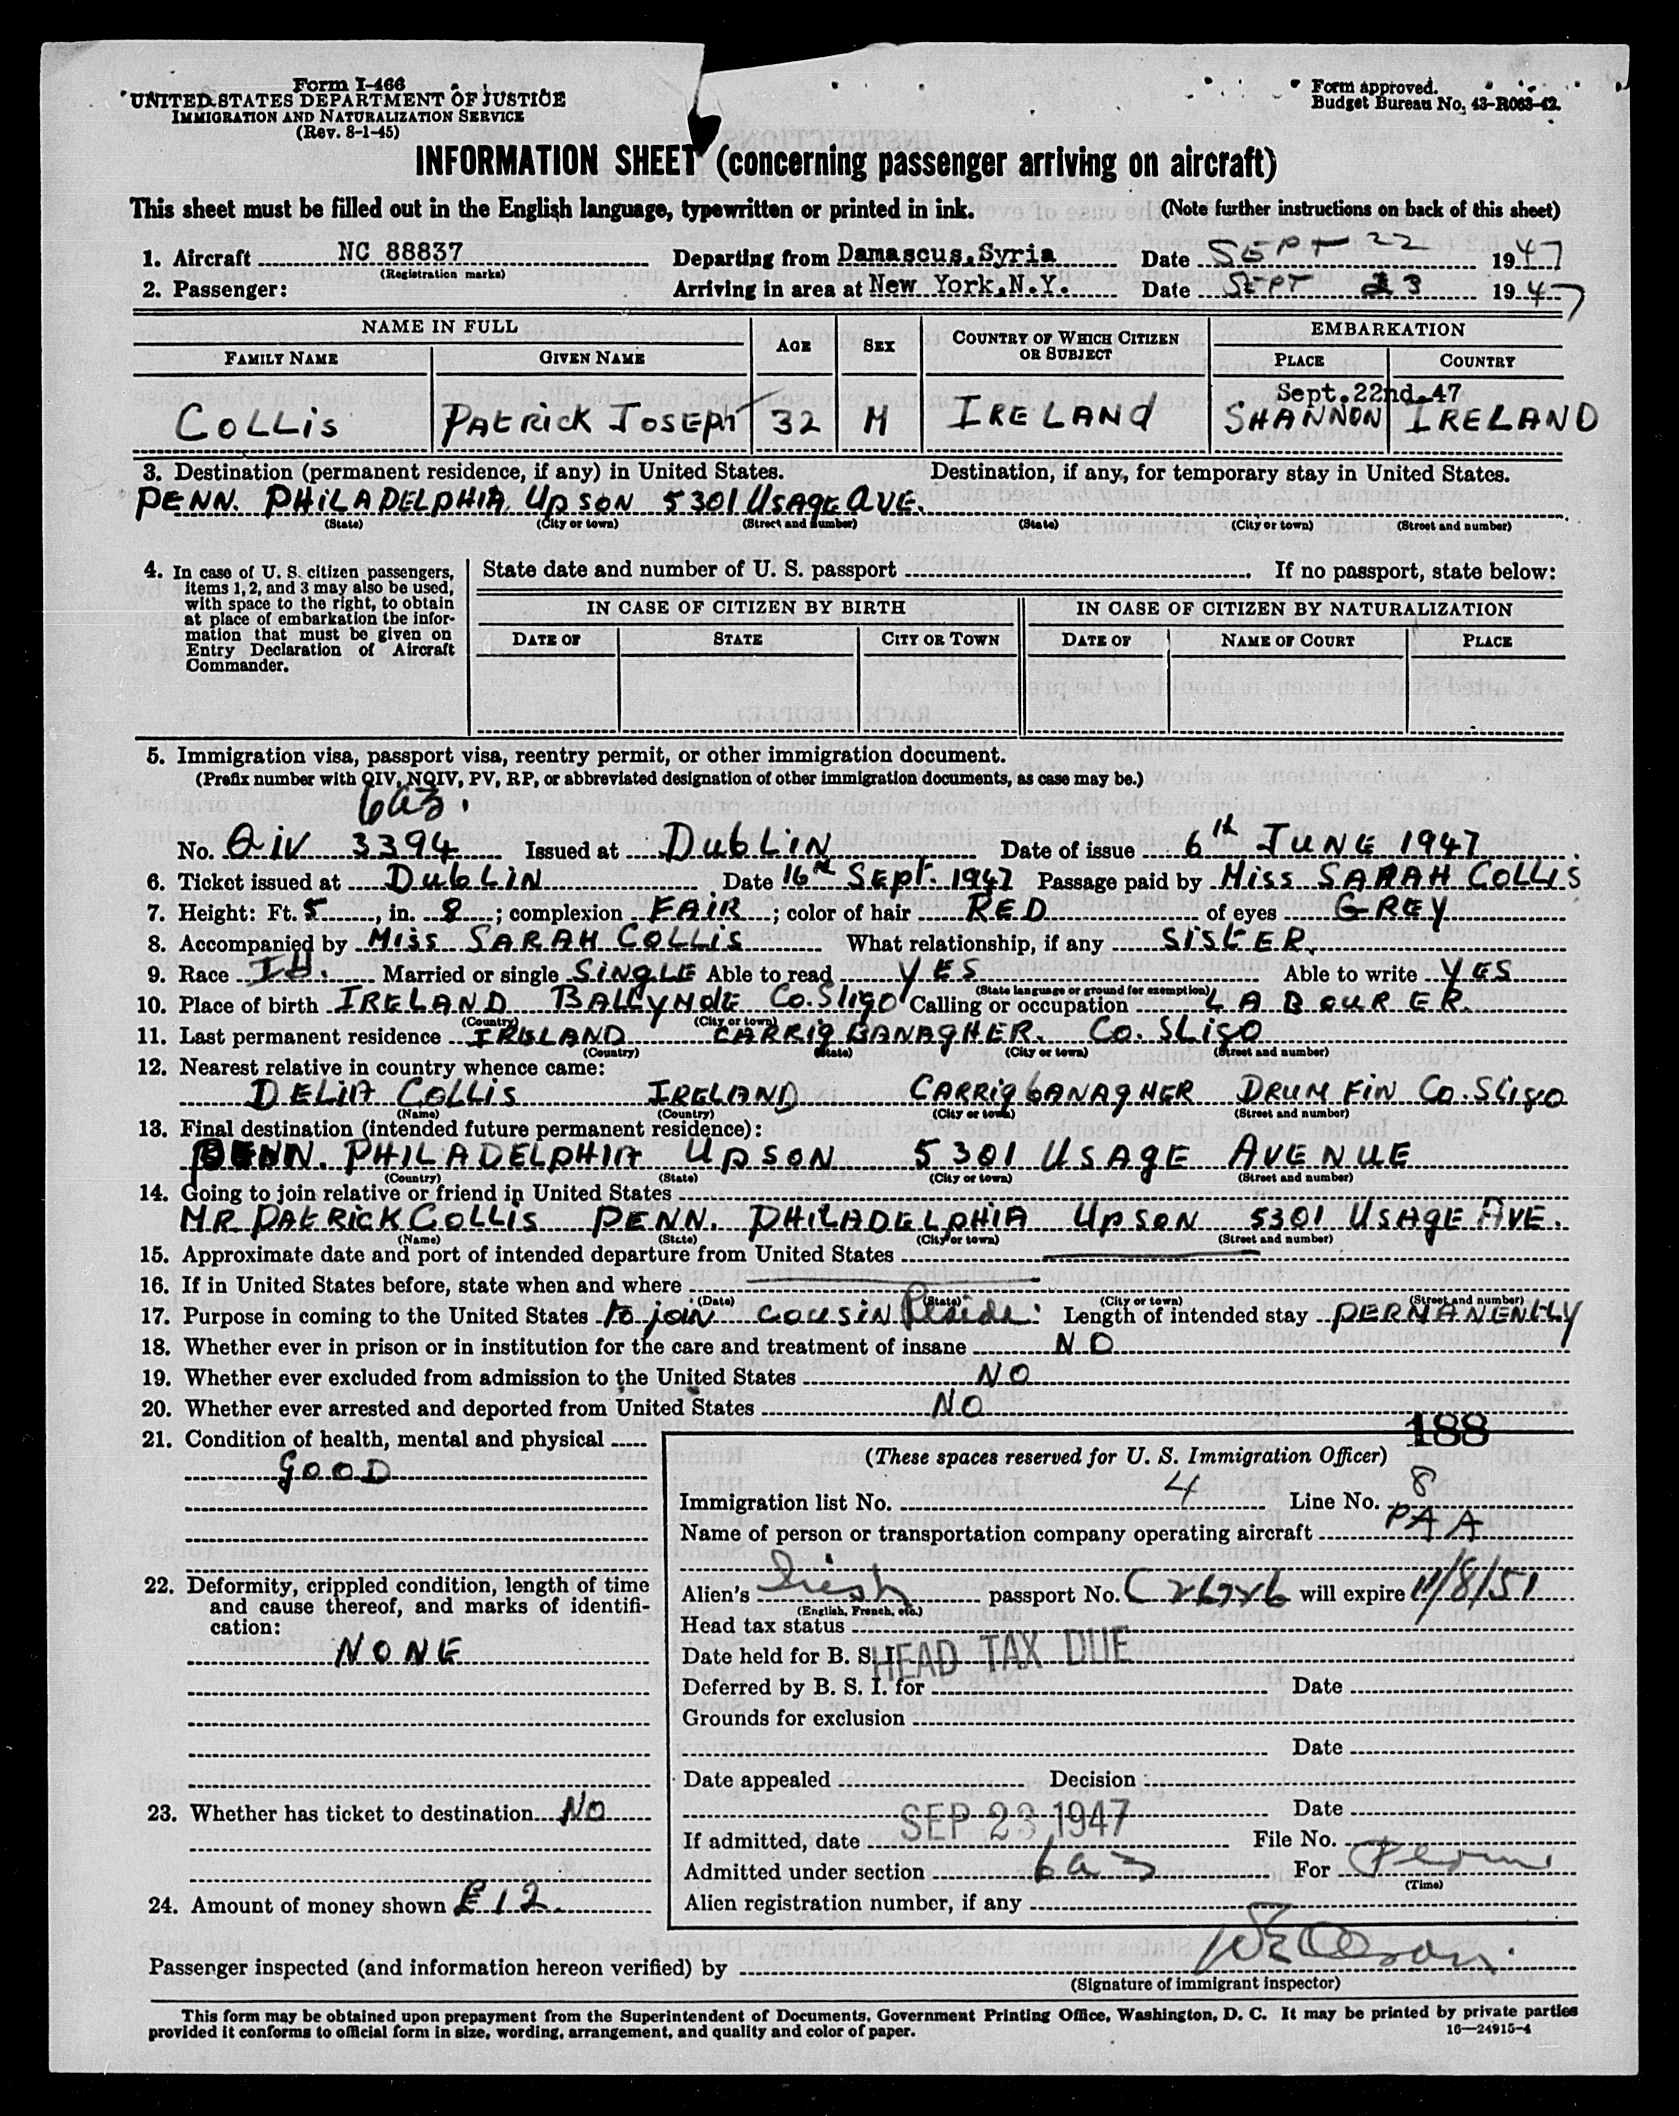 Form I-466
UNITED STATES DEPARTMENT OF JUSTICE
IMMIGRATION AND NATURALIZATION SERVICE
(Rev. 8-1-45)
Form approved.
Budget Bureau No. 43-R063-42.
INFORMATION SHEET (concerning passenger arriving on aircraft)
This sheet must be filled out in the English language, typewritten or printed in ink. (Note further instructions on back of this sheet)
1. Aircraft NC 88837 Departing from Damascus, Syria Date SEPT 22 1947
(Registration marks)
2. Passenger: Arriving in area at New York, N.Y. Date SEPT 23 1947
NAME IN FULL AGE SEX COUNTRY OF WHICH CITIZEN OR SUBJECT EMBARKATION
FAMILY NAME GIVEN NAME PLACE COUNTRY
Sept. 22nd. 47
COLLIS PATRICK JOSEPH 32 M IRELAND SHANNON IRELAND
3. Destination (permanent residence, if any) in United States. Destination, if any, for temporary stay in United States.
PENN. PHILADELPHIA, UPSON 5301 USAGE AVE.
(State) (City or town) (Street and number) (State) (City or town) (Street and number)
4. In case of U. S. citizen passengers, items 1, 2, and 3 may also be used, with space to the right, to obtain at place of embarkation the information that must be given on Entry Declaration of Aircraft Commander.
State date and number of U. S. passport If no passport, state below:
IN CASE OF CITIZEN BY BIRTH IN CASE OF CITIZEN BY NATURALIZATION
DATE OF STATE CITY OR TOWN DATE OF NAME OF COURT PLACE
5. Immigration visa, passport visa, reentry permit, or other immigration document.
(Prefix number with QIV, NQIV, PV, RP, or abbreviated designation of other immigration documents, as case may be.)
6a3.
No. QIV 3394 Issued at DUBLIN Date of issue 6th JUNE 1947
6. Ticket issued at DUBLIN Date 16th SEPT. 1947 Passage paid by MISS SARAH COLLIS
7. Height: Ft. 5, in. 8; complexion FAIR; color of hair RED of eyes GREY
8. Accompanied by MISS SARAH COLLIS What relationship, if any SISTER.
9. Race IH. Married or single SINGLE Able to read YES Able to write YES
(State language or ground for exemption)
10. Place of birth IRELAND BALLYMOTE CO. SLIGO Calling or occupation LABOURER.
(Country) (City or town)
11. Last permanent residence IRELAND CARRIGBANAGHER. CO. SLIGO
(Country) (State) (City or town) (Street and number)
12. Nearest relative in country whence came:
DELIA COLLIS IRELAND CARRIGBANAGHER DRUMFIN CO. SLIGO
(Name) (Country) (City or town) (Street and number)
13. Final destination (intended future permanent residence):
PENN. PHILADELPHIA UPSON 5301 USAGE AVENUE
(Country) (State) (City or town) (Street and number)
14. Going to join relative or friend in United States
MR. PATRICK COLLIS PENN. PHILADELPHIA UPSON 5301 USAGE AVE.
(Name) (State) (City or town) (Street and number)
15. Approximate date and port of intended departure from United States
16. If in United States before, state when and where
(Date) (State) (City or town) (Street and number)
17. Purpose in coming to the United States TO JOIN COUSIN Reside. Length of intended stay PERMANENTLY
18. Whether ever in prison or in institution for the care and treatment of insane NO
19. Whether ever excluded from admission to the United States NO
20. Whether ever arrested and deported from United States NO
21. Condition of health, mental and physical
GOOD
22. Deformity, crippled condition, length of time and cause thereof, and marks of identification:
NONE
23. Whether has ticket to destination NO
24. Amount of money shown £12.
188
(These spaces reserved for U. S. Immigration Officer)
Immigration list No. 4 Line No. 8
Name of person or transportation company operating aircraft PAA
Alien's Irish passport No. will expire 11/8/51
(English, French, etc.)
Head tax status
HEAD TAX DUE
Date held for B. S. I.
Deferred by B. S. I. for Date
Grounds for exclusion
Date
Date appealed Decision
Date
If admitted, date SEP 23 1947 File No.
Admitted under section 6a3 For Perm
(Time)
Alien registration number, if any
Passenger inspected (and information hereon verified) by
(Signature of immigrant inspector)
This form may be obtained upon prepayment from the Superintendent of Documents, Government Printing Office, Washington, D. C. It may be printed by private parties
provided it conforms to official form in size, wording, arrangement, and quality and color of paper.
16—24915-4